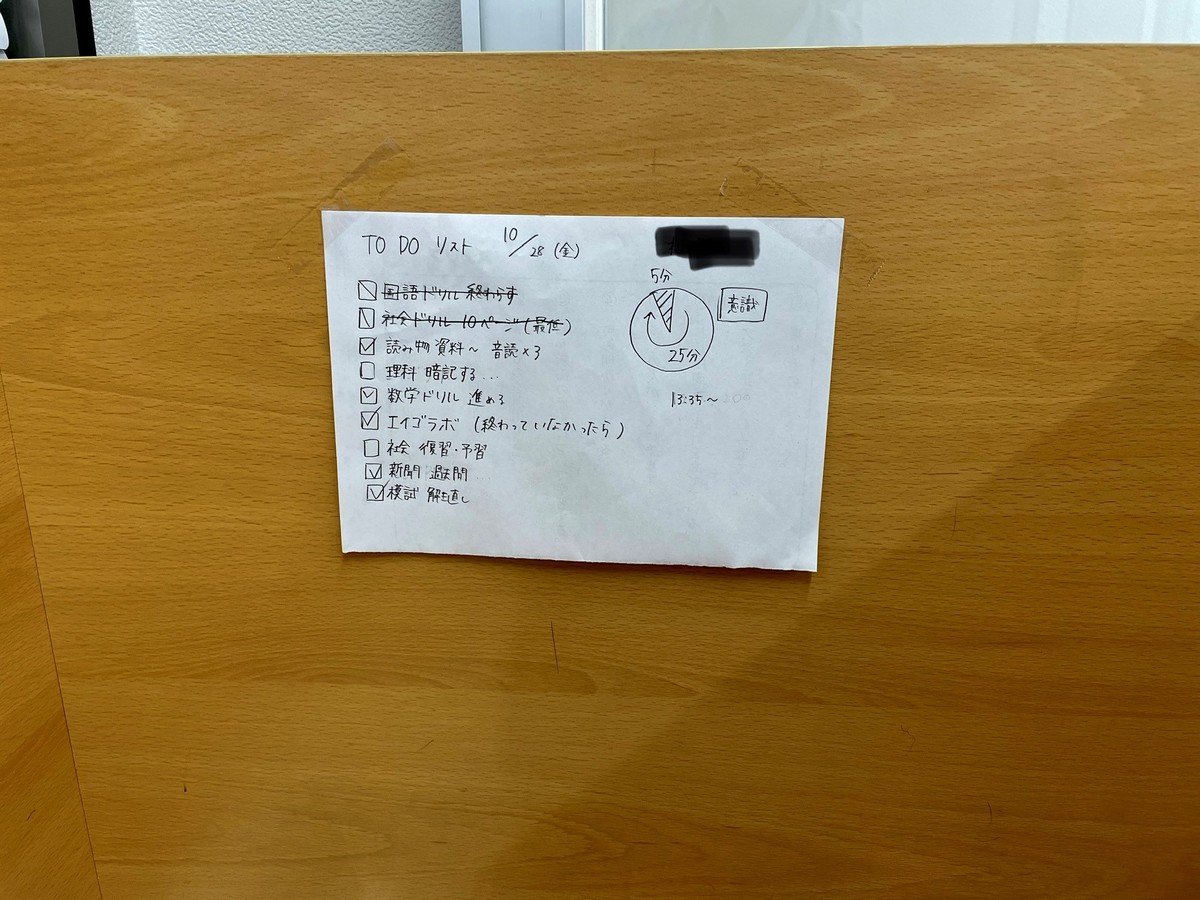 TO DO リスト 10/28 (金)
国語ドリル 終わらす
社会ドリル 10ページ (最低)
読み物資料〜 音読×3
理科 暗記する...
数学ドリル 進める
エイゴラボ (終わっていなかったら)
社会 復習・予習
新聞 過去問
模試 解き直し
5分
25分
意識
13:35〜